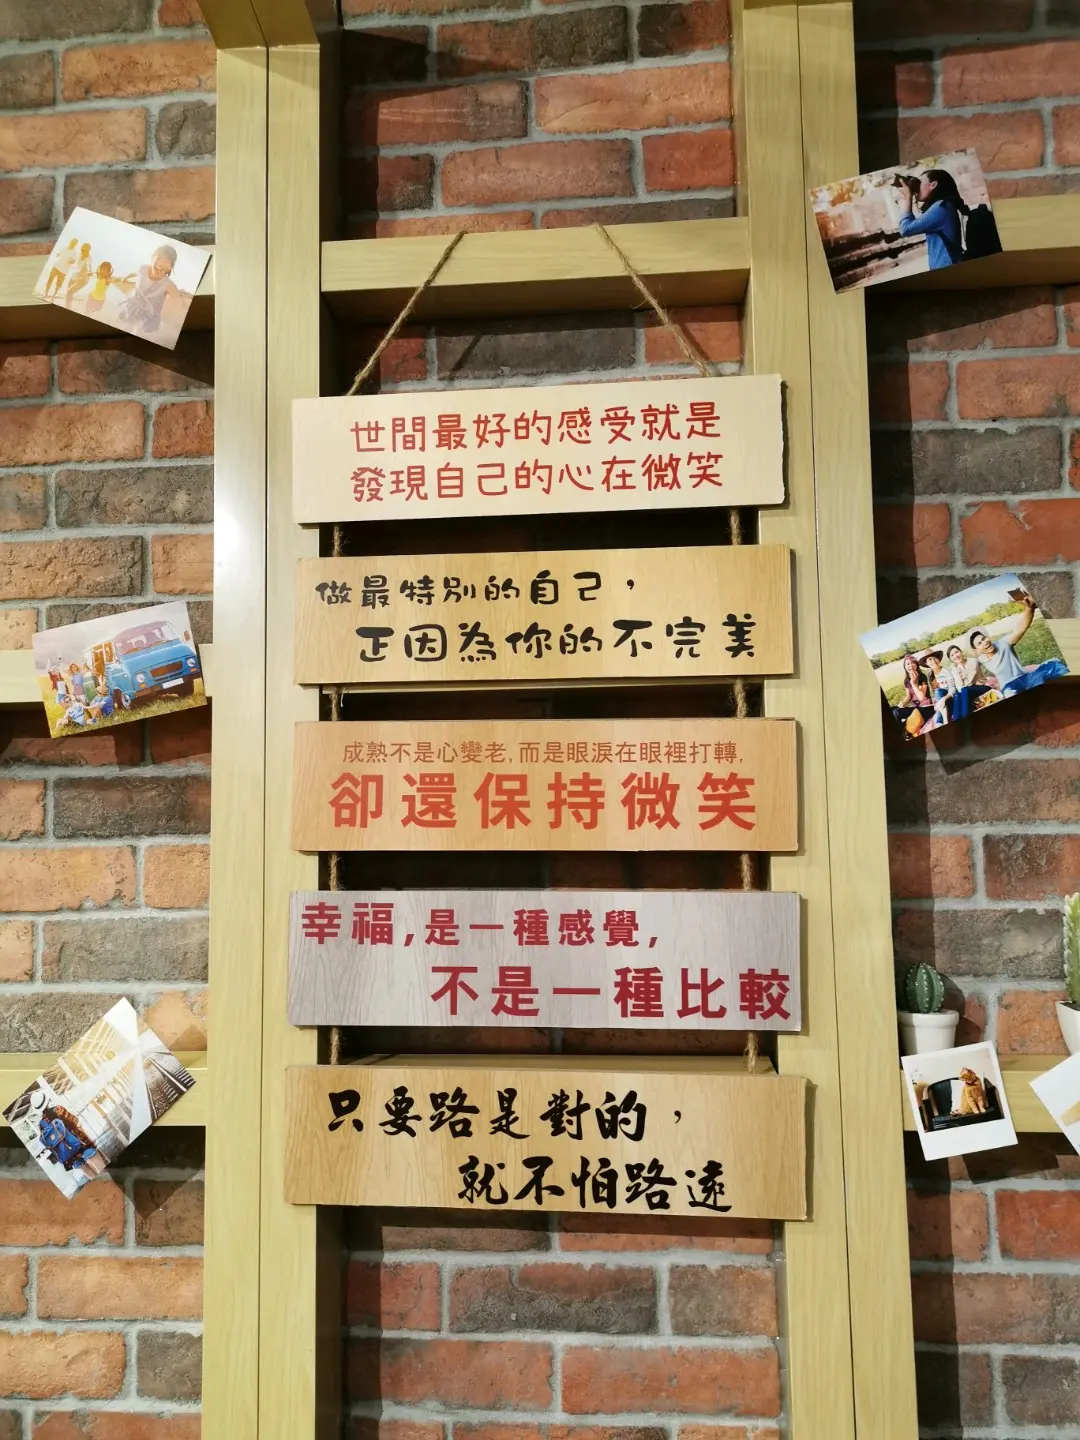 世間最好的感受就是
發現自己的心在微笑
做最特別的自己，
正因為你的不完美
成熟不是心變老,而是眼淚在眼裡打轉,
卻還保持微笑
幸福,是一種感覺,
不是一種比較
只要路是對的，
就不怕路遠